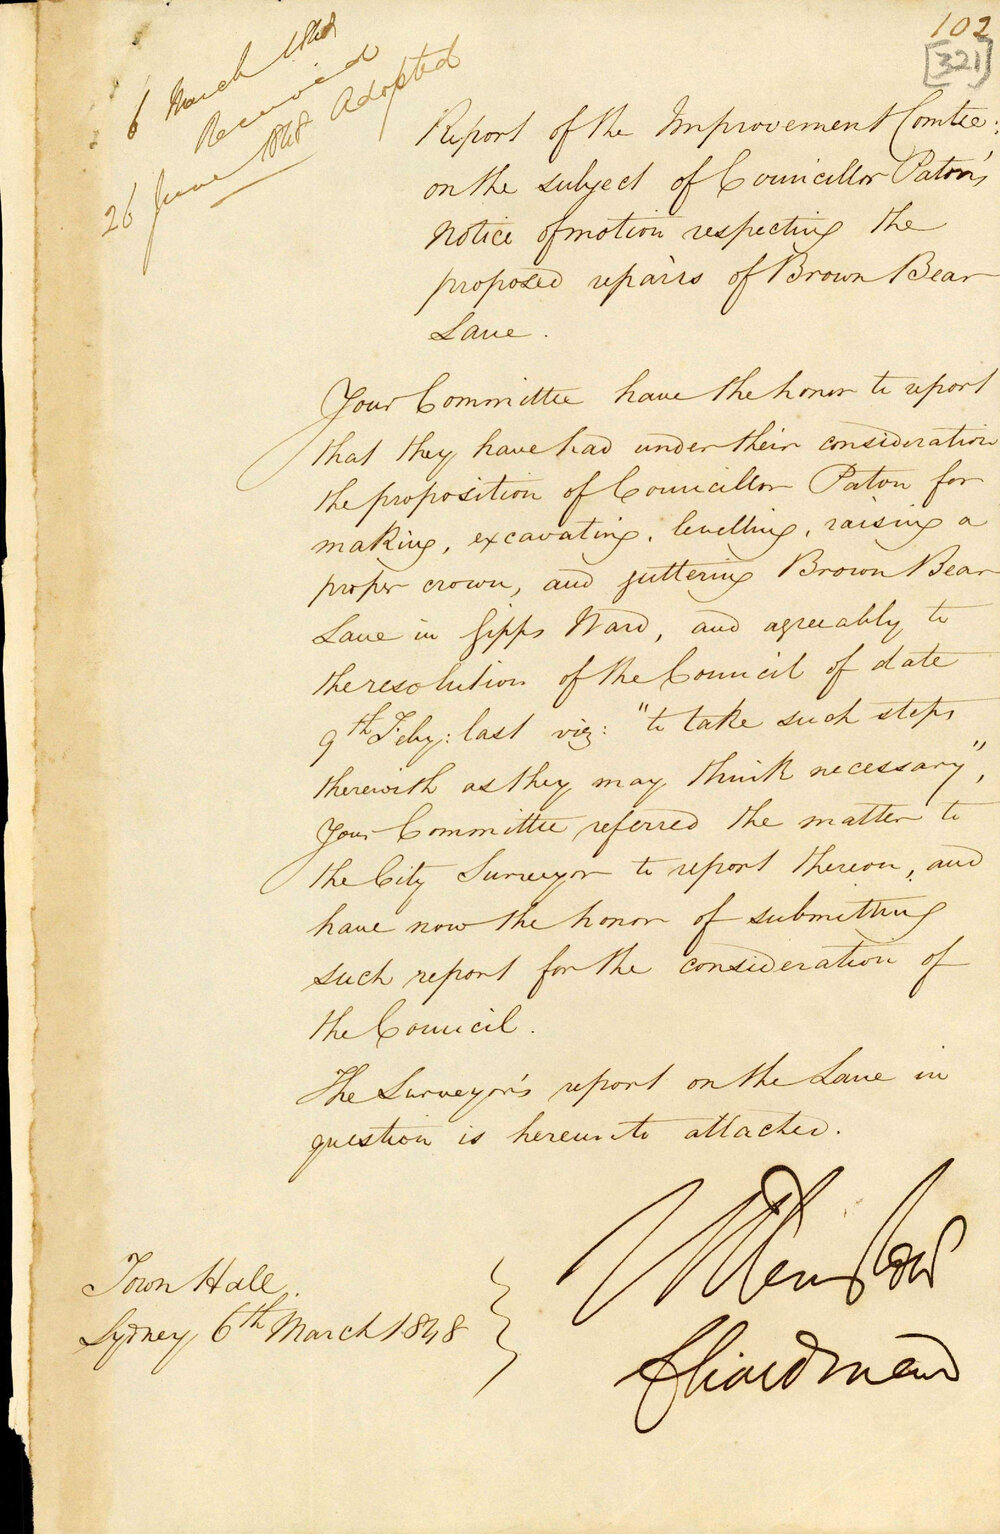 102
[321]
6 March 1848
Received
26 June 1848 Adopted
Report of the Improvement Comtee:
on the subject of Councillor Paton's
notice of motion respecting the
proposed repairs of Brown Bear
Lane.
Your Committee have the honor to report
that they have had under their consideration
the proposition of Councillor Paton for
making, excavating, levelling, raising a
proper crown, and guttering Brown Bear
Lane in Gipps Ward, and agreeably to
the resolution of the Council of date
9th Feby: last viz: "to take such steps
therewith as they may think necessary",
Your Committee referred the matter to
the City Surveyor to report thereon, and
have now the honor of submitting
such report for the consideration of
the Council.
The Surveyor's report on the Lane in
question is hereunto attached.
Town Hall.
Sydney 6th March 1848
Chairman